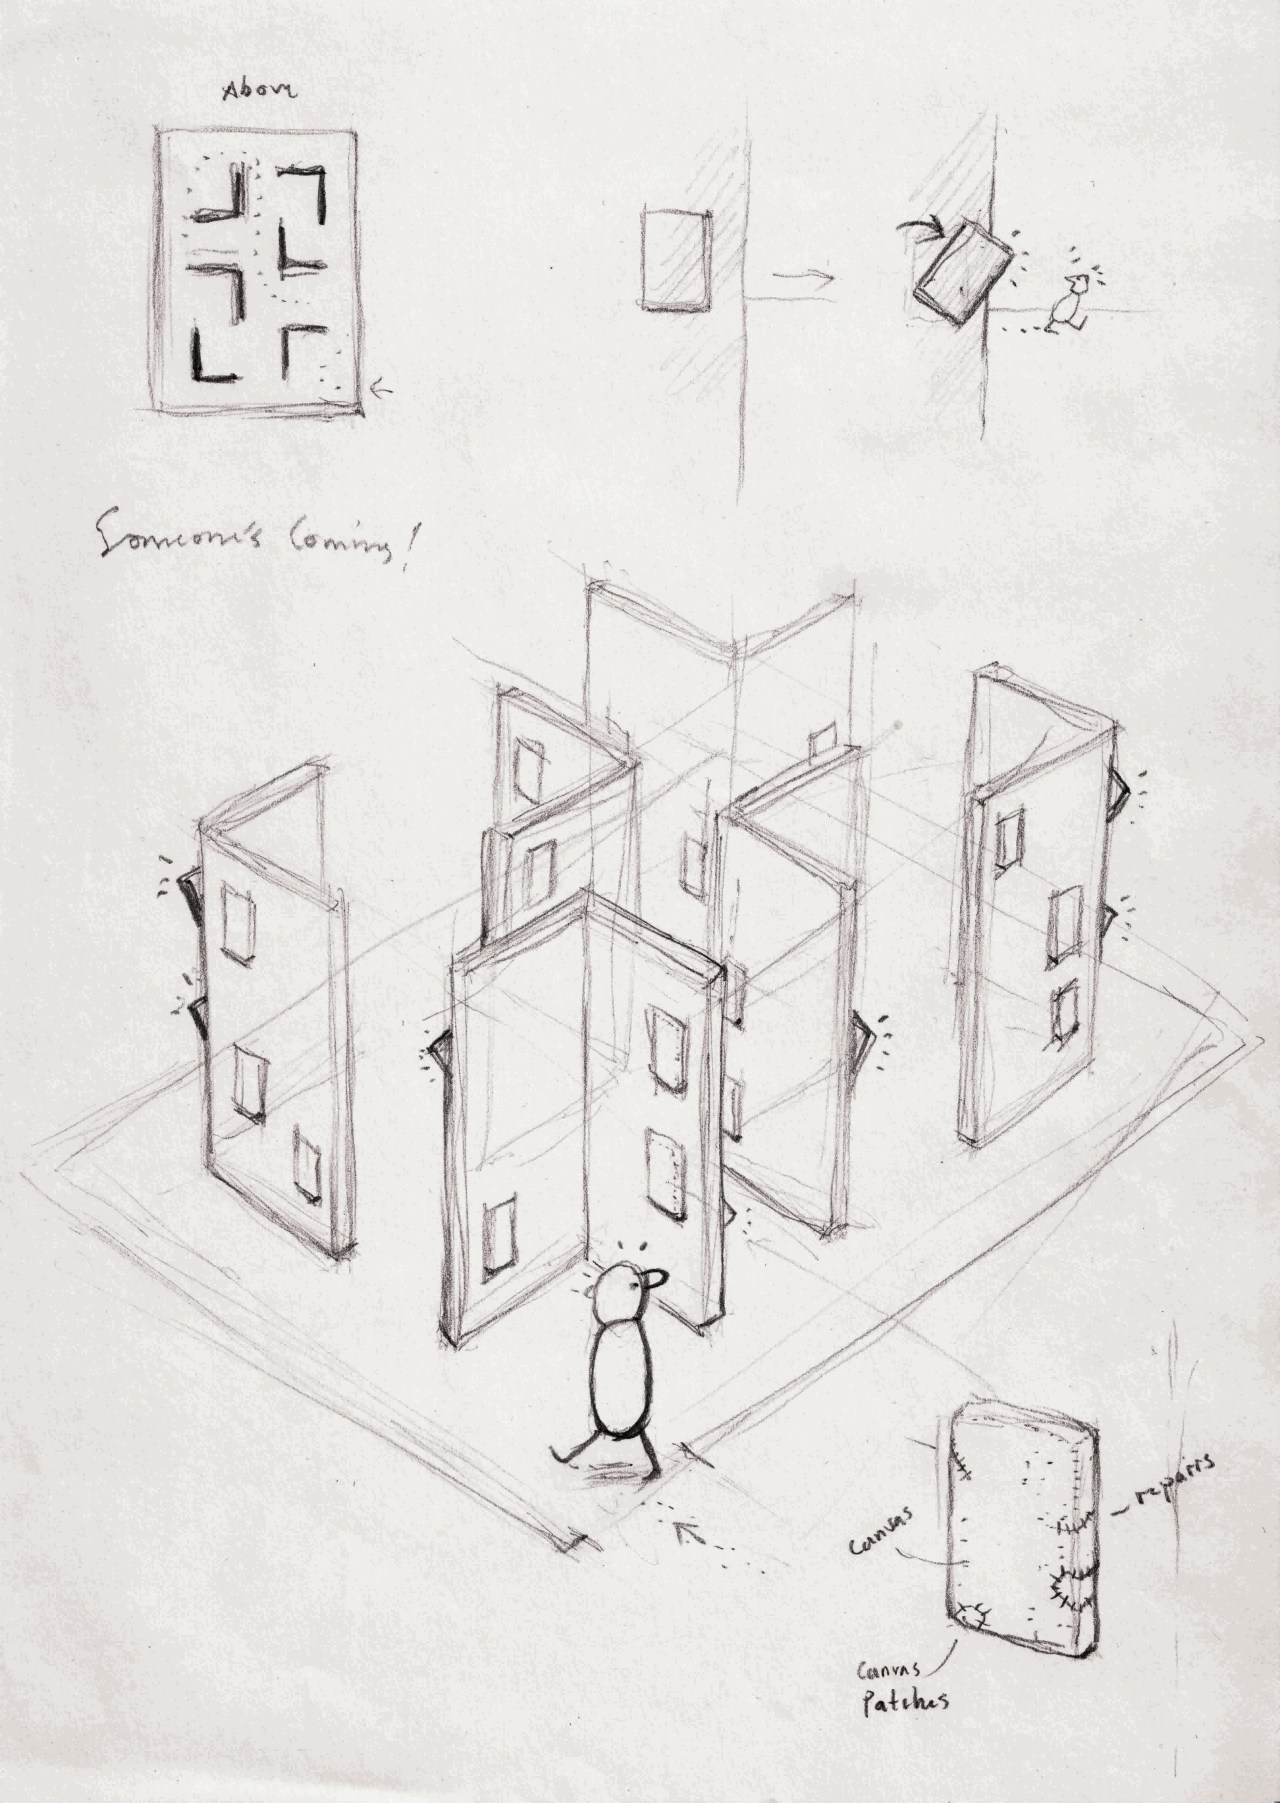 Above
Someone's Coming!
repairs
Canvas
Canvas
Patches